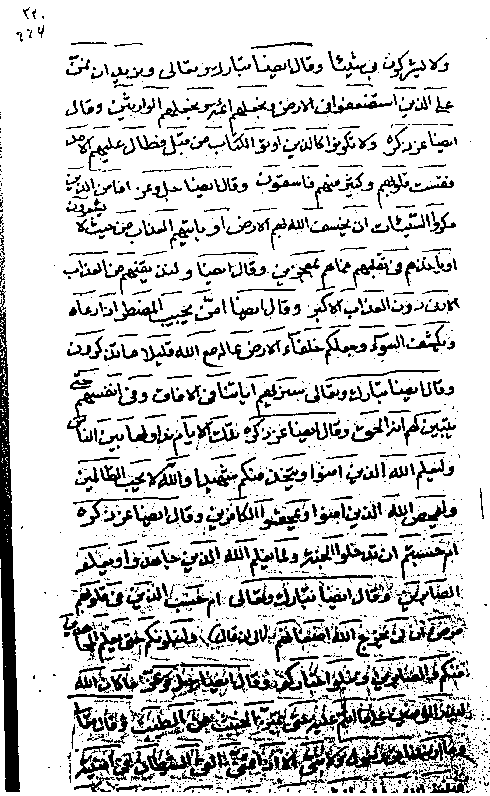 ٣٢٠
٤٤٤
ولا يشركون بي شيئا وقال ايضا تبارك وتعالى ونريد ان نمن
على الذين استضعفوا في الارض ونجعلهم ائمة ونجعلهم الوارثين وقال
ايضا عز ذكره ولا تكونوا كالذين اوتوا الكتاب من قبل فطال عليهم الامد
فقست قلوبهم وكثير منهم فاسقون وقال ايضا جل وعز افامن الذين
مكروا السيئات ان يخسف الله بهم الارض او ياتيهم العذاب من حيث لا يشعرون
او ياخذهم في تقلبهم فما هم بمعجزين وقال ايضا ولنذيقنهم من العذاب
الادنى دون العذاب الاكبر وقال ايضا امن يجيب المضطر اذا دعاه
ويكشف السوء ويجعلكم خلفاء الارض ءاله مع الله قليلا ما تذكرون
وقال ايضا تبارك وتعالى سنريهم اياتنا في الافاق وفي انفسهم حتى
يتبين لهم انه الحق وقال ايضا عز ذكره تلك الايام نداولها بين الناس
وليعلم الله الذين امنوا ويتخذ منكم شهداء والله لا يحب الظالمين
وليمحص الله الذين امنوا ويمحق الكافرين وقال ايضا عز ذكره
ام حسبتم ان تدخلوا الجنة ولما يعلم الله الذين جاهدوا ويعلم
الصابرين وقال ايضا تبارك وتعالى ام حسب الذين في قلوبهم
مرض ان لن يخرج الله اضغانهم ولنبلونكم حتى نعلم المجاهدين
منكم والصابرين ونبلو اخباركم وقال ايضا جل وعز ما كان الله
ليذر المؤمنين على ما انتم عليه حتى يميز الخبيث من الطيب وقال